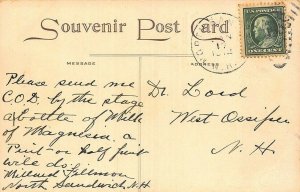 Souvenir Post Card
MESSAGE
ADDRESS
U.S. POSTAGE
ONE CENT
Please send me
C.O.D. by the stage
a bottle of Milk
of Magnesia, a
Pint - or half pint
will do.
Millard Fillmore
North Sandwich, N.H
Dr. Lord
West Ossipee
N. H